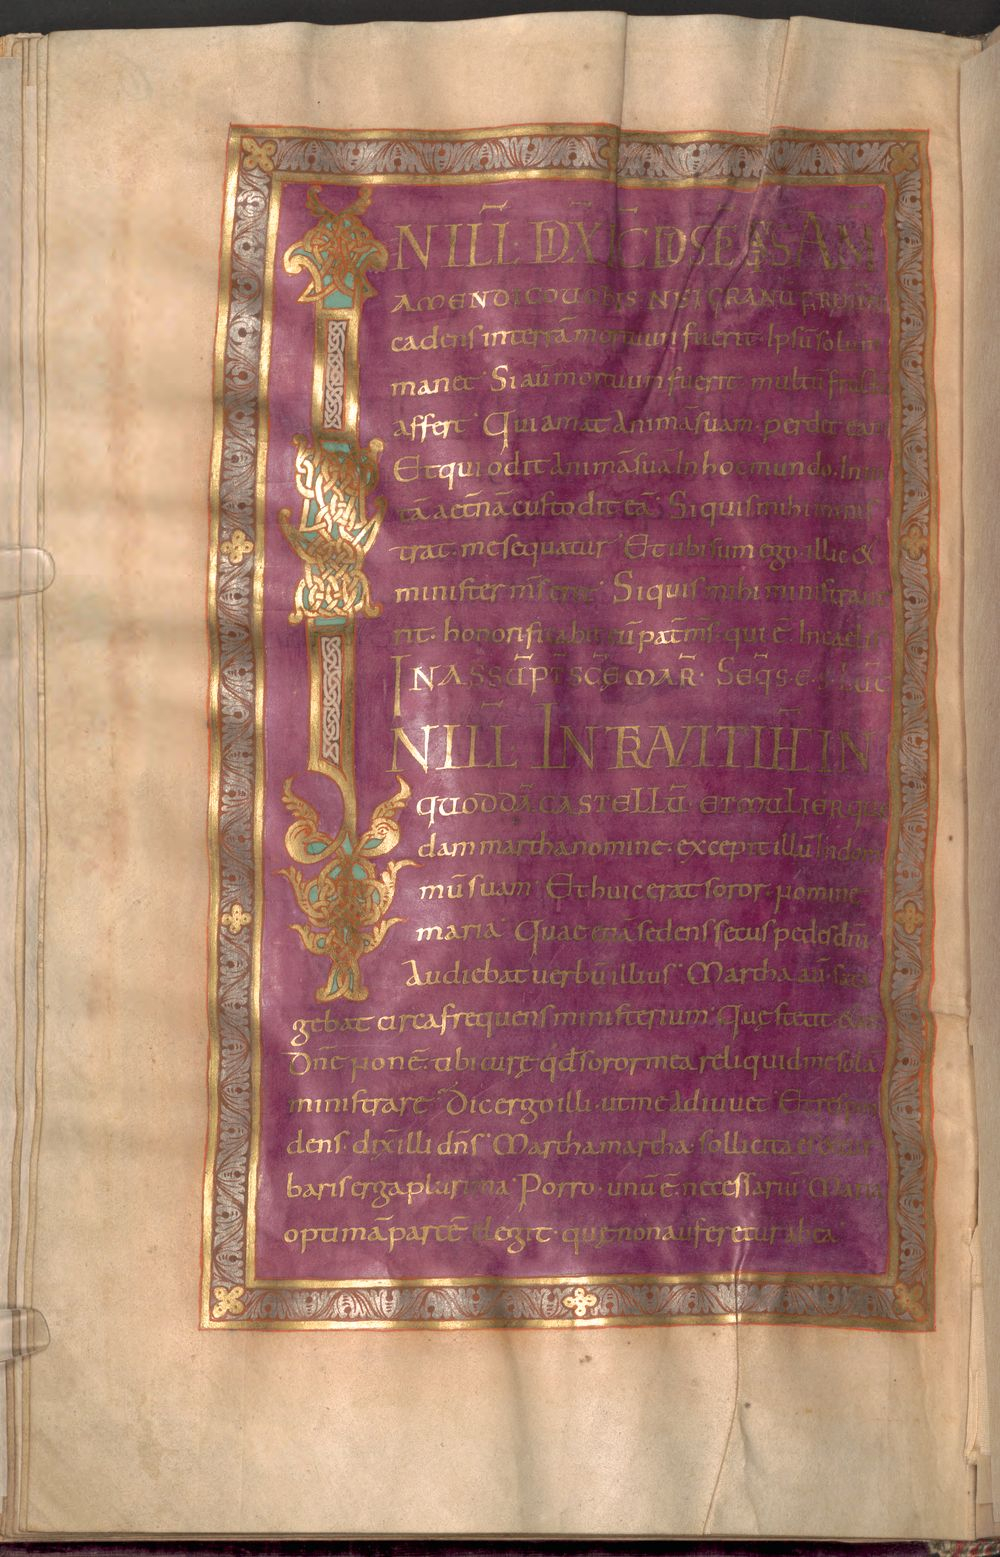 IN ILL̄. DIX̄ IH̄C DISC̄ SUIS. AM̄
AMEN DICO UOBIS NISI GRANŪ FRUM̄
cadens in terrā mortuum fuerit. Ipsū solum
manet. Si aū mortuum fuerit. multū fruct̄
affert. Qui amat animā suam. perdet eam
Et qui odit animā suā In hoc mundo. In ui
tā aet̄nā custodit eā. Si quis mihi minis
trat. me sequatur. Et ubi sum ego. illic &
minister m̄s erit. Si quis mihi ministraue
rit. honorificabit eū pat̄ m̄s. qui ē. In caelis
IN ASSŪPT̄ SC̄Ę MAR̄. SEQ̄S. E.
IN ILL̄. INTRAUIT IH̄C IN
QUODDĀ CASTELLŪ. ET MULIER QUĘ
dam martha nomine. excepit illū In dom
mū suam. Et huic erat soror. nomine
maria. Quae etiā sedens secus pedes dn̄i
Audiebat uerbū illius. Martha aū. sata
gebat circa frequens ministerium. Quę stetit & ait
Dn̄e non ē. tibi curę qd̄ soror mea reliquid me solā
ministrare. Dic ergo illi. ut me adiuuet. Et respon
dens. dix̄ illi dn̄s. Martha martha. sollicita es & tur
baris erga plurima. Porro. unū ē. necessariū. Maria
optimā partē elegit. quę non auferetur ab ea.